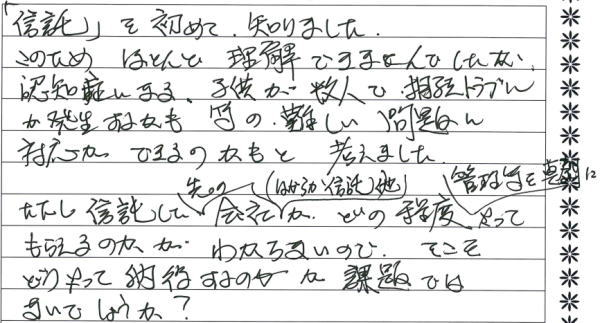 「信託」を初めて、知りました。
このため ほとんど 理解できませんでしたが、
認知症になる、子供が数人で・相続トラブル
が発生するかも 等の・難しい 問題に
対応が できるのかもと 考えました。
先の (はからか信託他) 管理等を 真剣に
ただし 信託した 会社が、どの程度 やって
もらえるのか が わからないので、そこを
どうやって 納得するのか が 課題では
ないでしょうか?